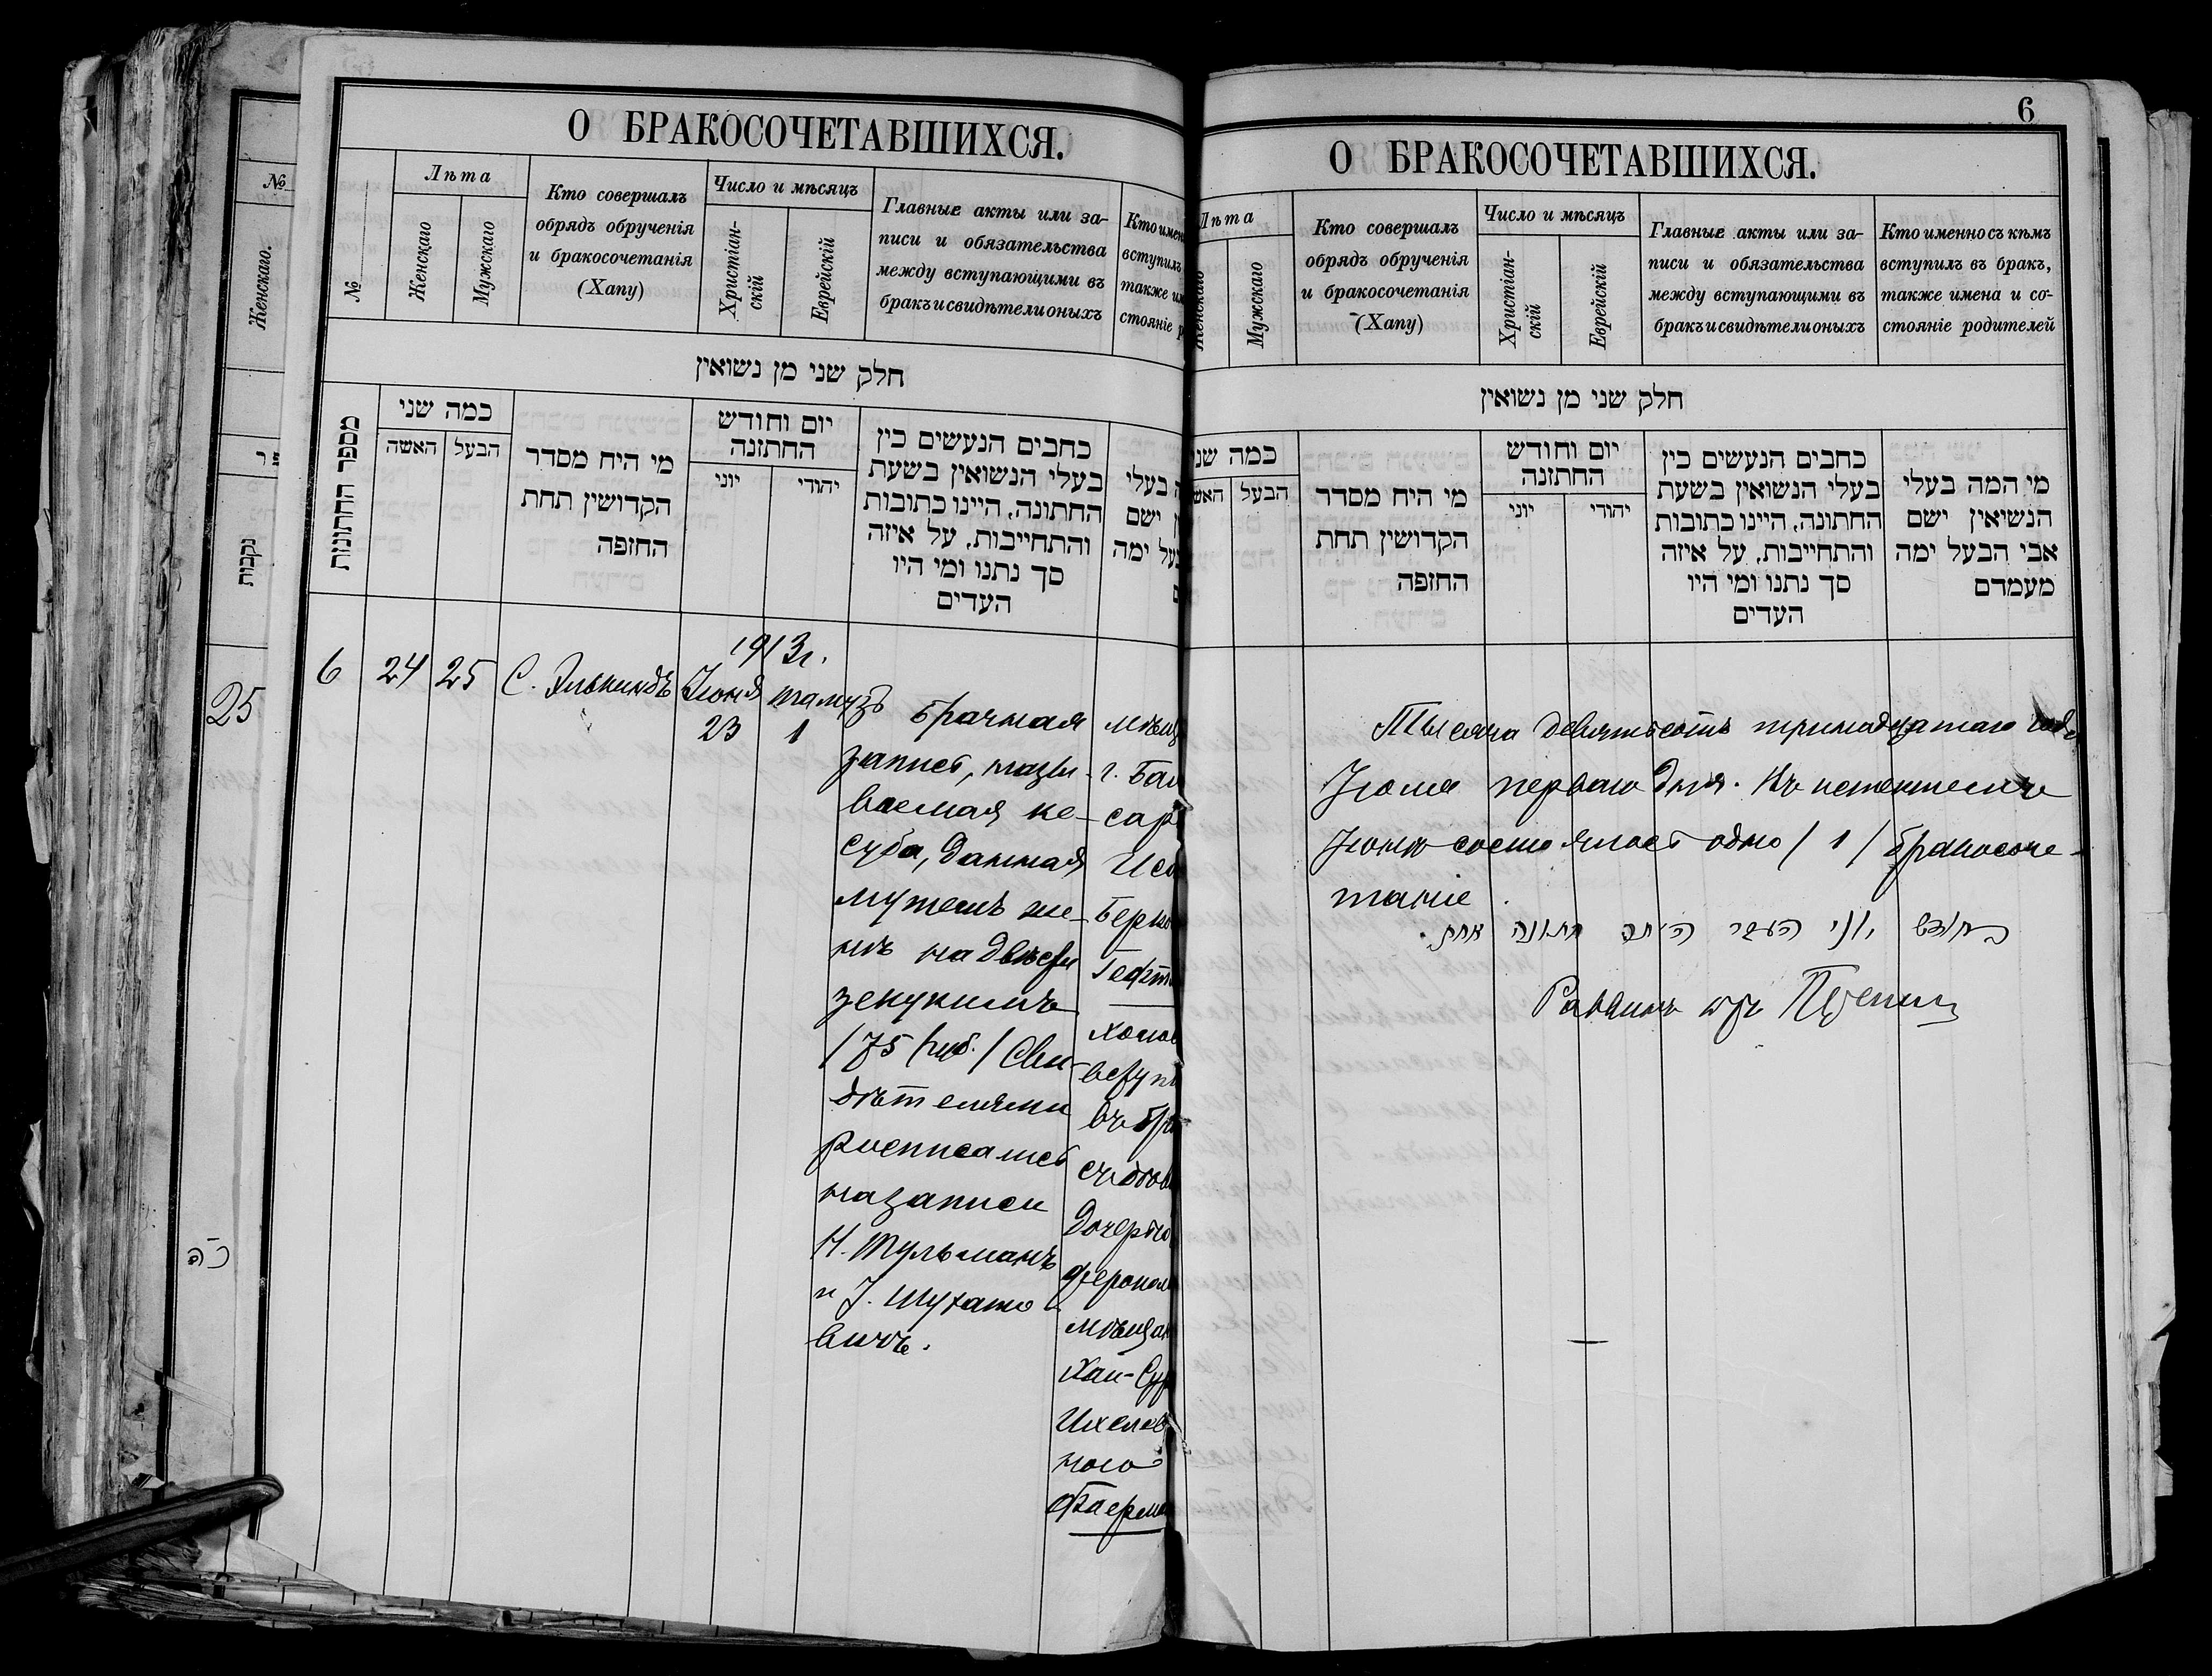 №
Женскаго.
נקבות
25
כ"ה
О БРАКОСОЧЕТАВШИХСЯ.
№
Лѣта
Женскаго
Мужскаго
Кто совершалъ
обрядъ обрученія
и бракосочетанія
(Хапу)
Число и мѣсяцъ
Христіан-
скій
Еврейскій
Главные акты или за-
писи и обязательства
между вступающими въ
бракъ и свидѣтели оныхъ
Кто имен
вступилъ
также им
стояніе р
חלק שני מן נשואין
מספר החתונות
כמה שני
האשה
הבעל
מי היח מסדר
הקדושין תחת
החופה
יום וחודש
החתונה
יוני
יהודי
כחבים הנעשים כין
בעלי הנשואין בשעת
החתונה, היינו כתובות
והתחייבות, על איזה
סך נתנו ומי היו
העדים
בעלי
ישם
בעל ימה
6
24
25
С. Элькиндъ
1913 г.
Іюня
23
тамузъ
1
Брачная
запись, назы-
ваемая ке-
суба, данная
мужемъ же-
нѣ на двѣсти
зекукимъ
/75 руб./ Сви-
дѣтелями
росписались
на записи
Н. Тульманъ
и І. Шухато-
вичъ.
мѣщ
г. Бал
сар
Исо
Берко
Гефт
холос
вступ
въ бра
съ дѣви
дочерью
ферополь
мѣщан
Хаи-Сур
Ихелев
ною
Фаерма
6
О БРАКОСОЧЕТАВШИХСЯ.
Лѣта
Женскаго
Мужскаго
Кто совершалъ
обрядъ обрученія
и бракосочетанія
(Хапу)
Число и мѣсяцъ
Христіан-
скій
Еврейскій
Главные акты или за-
писи и обязательства
между вступающими въ
бракъ и свидѣтели оныхъ
Кто именно съ кѣмъ
вступилъ въ бракъ,
также имена и со-
стояніе родителей
חלק שני מן נשואין
כמה שני
האש
הבעל
מי היח מסדר
הקדושין תחת
החופה
יום וחודש
החתונה
יוני
יהודי
כחבים הנעשים כין
בעלי הנשואין בשעת
החתונה, היינו כתובות
והתחייבות, על איזה
סך נתנו ומי היו
העדים
מי המה בעלי
הנשיאין ישם
אבי הבעל ימה
מעמדם
Тысяча девятьсотъ тринадцатаго года
Іюля перваго дня. Въ истекшемъ
Іюнѣ состоялось одно /1/ бракосоче-
таніе.
בחודש יוני העבר היתה חתונה אחת.
Раввинъ